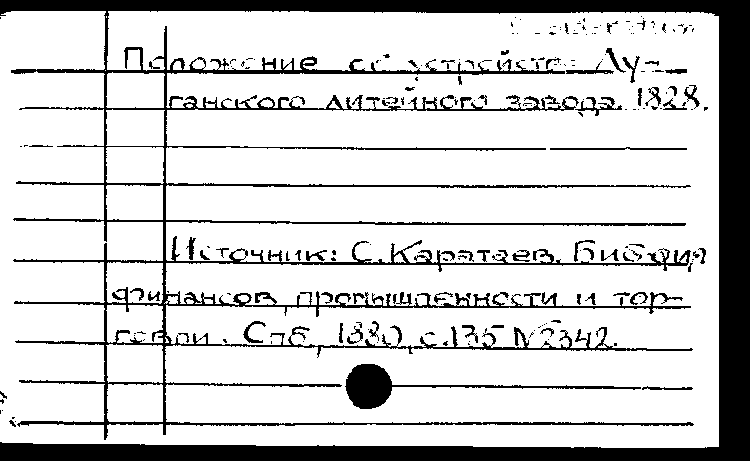 Desideratum
Положение об устройстве Лу-
ганского литейного завода. 1828.
Источник: С. Каратаев. Библ-фия
финансов, промышленности и тор-
говли. Спб, 1880, с.135 №2342.